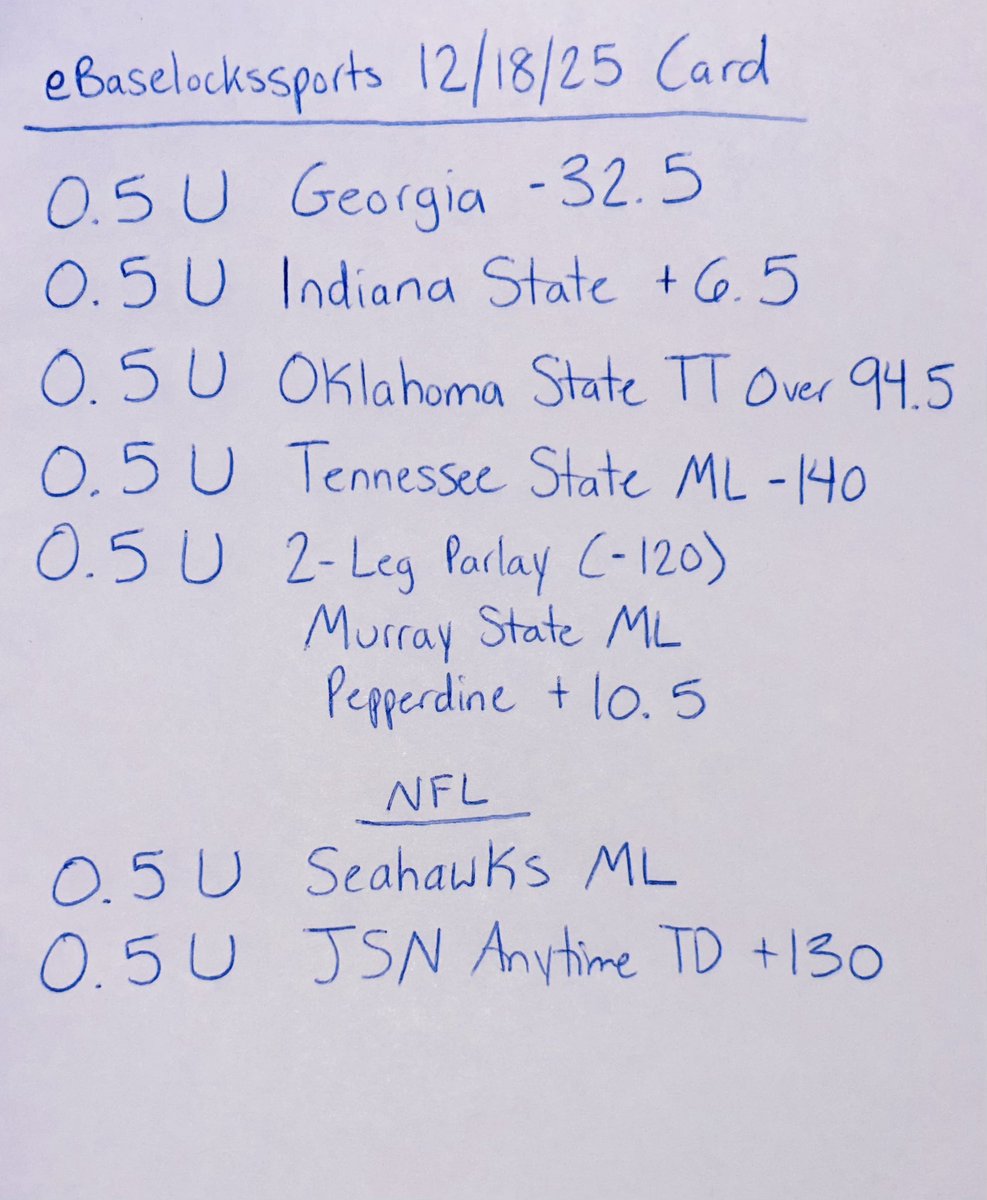 eBaselockssports 12/18/25 Card
0.5 U Georgia -32.5
0.5 U Indiana State +6.5
0.5 U Oklahoma State TT Over 94.5
0.5 U Tennessee State ML -140
0.5 U 2-Leg Parlay (-120)
Murray State ML
Pepperdine +10.5
NFL
0.5 U Seahawks ML
0.5 U JSN Anytime TD +130